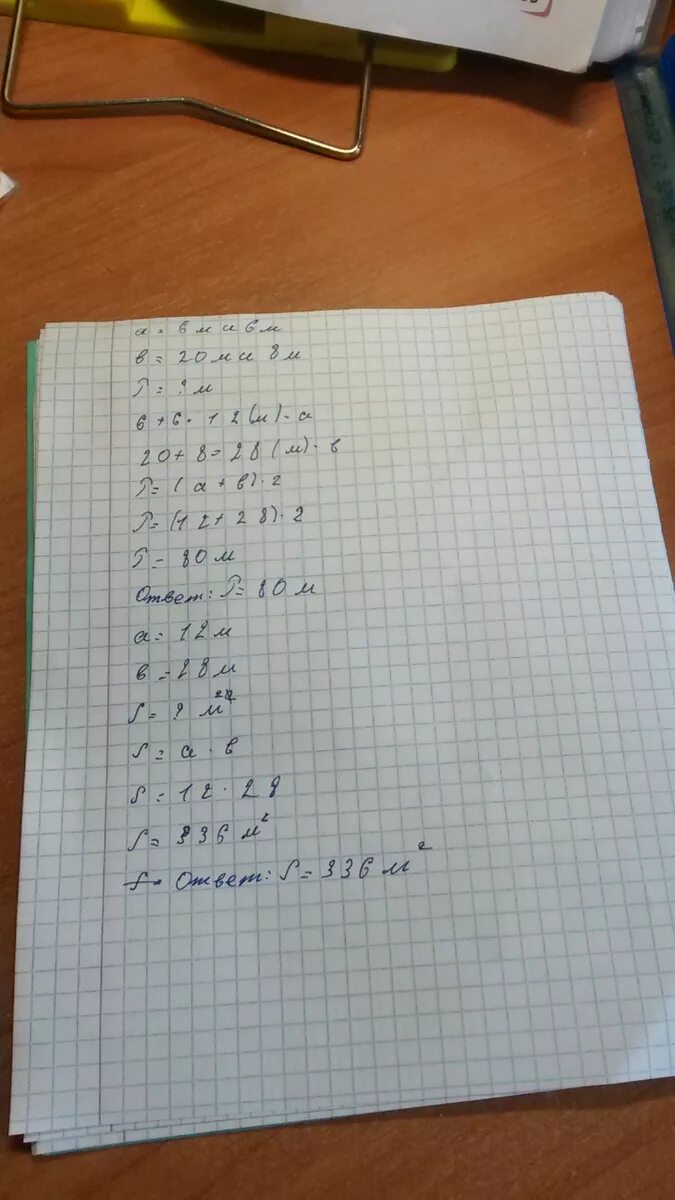 а = 6 м и 6 м
в = 20 м и 8 м
P = ? м
6 + 6 = 12 (м) - а
20 + 8 = 28 (м) - в
P = (а + в) · 2
P = (12 + 28) · 2
P = 80 м
Ответ: P = 80 м
а = 12 м
в = 28 м
S = ? м²
S = а · в
S = 12 · 28
S = 336 м²
Ответ: S = 336 м²